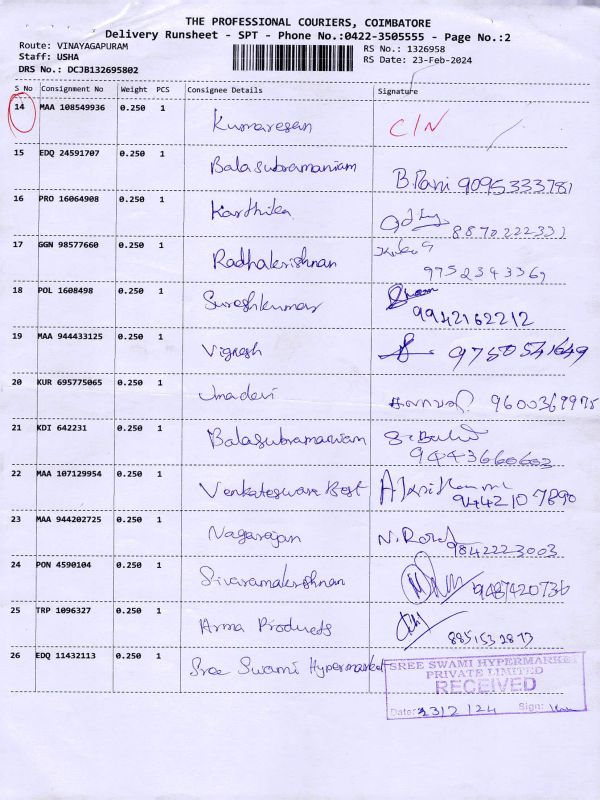 THE PROFESSIONAL COURIERS, COIMBATORE
Delivery Runsheet - SPT - Phone No.:0422-3505555 - Page No.:2
Route: VINAYAGAPURAM RS No.: 1326958
Staff: USHA RS Date: 23-Feb-2024
DRS No.: DCJB132695802
S No Consignment No Weight PCS Consignee Details Signature
14 MAA 108549936 0.250 1 Kumaresan C/N
15 EDQ 24591707 0.250 1 Balasubramaniam B.Rani 9095333781
16 PRO 16064908 0.250 1 Karthika 8870222331
17 GGN 98577660 0.250 1 Radhakrishnan 9752343369
18 POL 1608498 0.250 1 Sureshkumar 9942162212
19 MAA 944433125 0.250 1 Vignesh 9750541649
20 KUR 695775065 0.250 1 Umadevi 9600369975
21 KDI 642231 0.250 1 Balasubramaniam 9443660602
22 MAA 107129954 0.250 1 Venkateswara Best 9442107890
23 MAA 944202725 0.250 1 Nagarajan 9842223003
24 PON 4590104 0.250 1 Sivaramakrishnan 9487420736
25 TRP 1096327 0.250 1 Arma Products 8851532873
26 EDQ 11432113 0.250 1 Sree Swami Hypermarket
SREE SWAMI HYPERMARKET
PRIVATE LIMITED
RECEIVED
Date: 23/2/24 Sign: